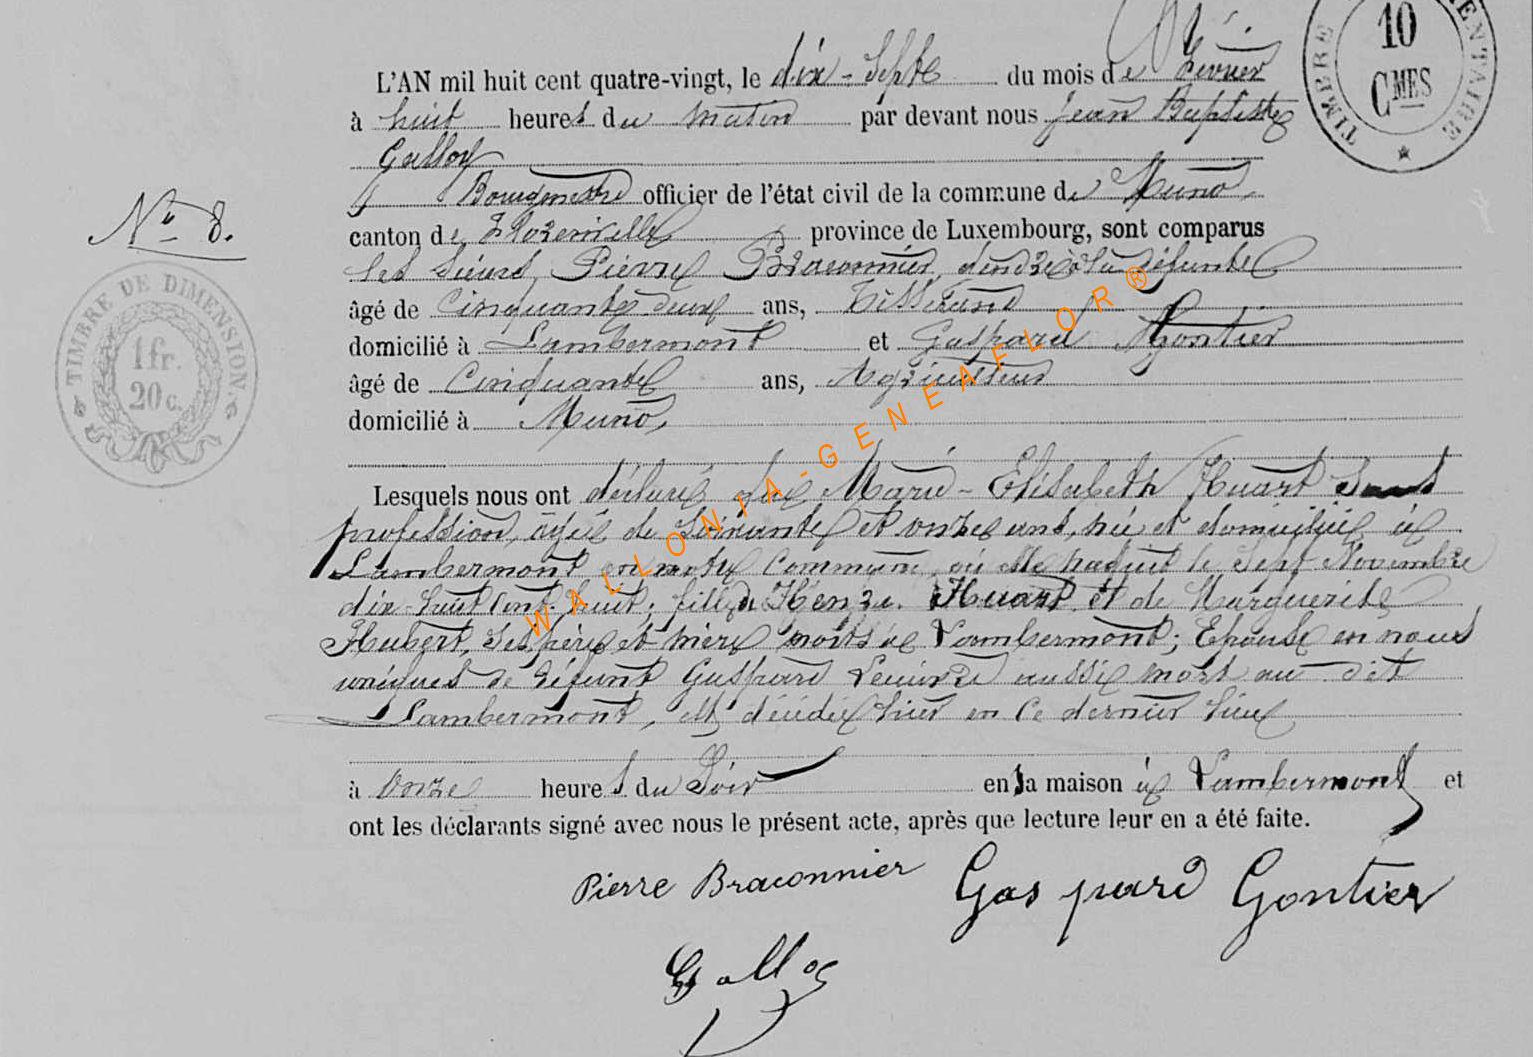 TIMBRE
10
CMES
L'AN mil huit cent quatre-vingt, le dix-septe du mois de Fevrier
à huit heures du matin par devant nous Jean Baptiste
Galloy
Bourgmestre officier de l'état civil de la commune de Muno,
N° 8.
canton de Florenville province de Luxembourg, sont comparus
les sieurs Pierre Braconnier, gendre à la défunte
âgé de Cinquante deux ans, Tisserand
domicilié à Lambermont et Gaspard Gontier
âgé de Cinquante ans, Agriculteur
domicilié à Muno,
TIMBRE DE DIMENSION
1 fr.
20 c.
Lesquels nous ont déclaré que Marie-Elisabeth Huart Sans
profession, agée de Soixante et onze ans, née et domiciliée à
Lambermont en notre Commune, où elle naquit le Sept Novembre
dix huit cent huit; fille de Huart et de Marguerite
Hubert, ses père et mère morts à Lambermont; Epouse en noces
uniques de défunt Gaspard aussi mort au dit
Lambermont, est décédée hier en ce dernier lieu
à onze heures du Soir en sa maison à Lambermont et
ont les déclarants signé avec nous le présent acte, après que lecture leur en a été faite.
Pierre Braconnier Gaspard Gontier
Galloy
WALLONIA-GENEAFLOR®